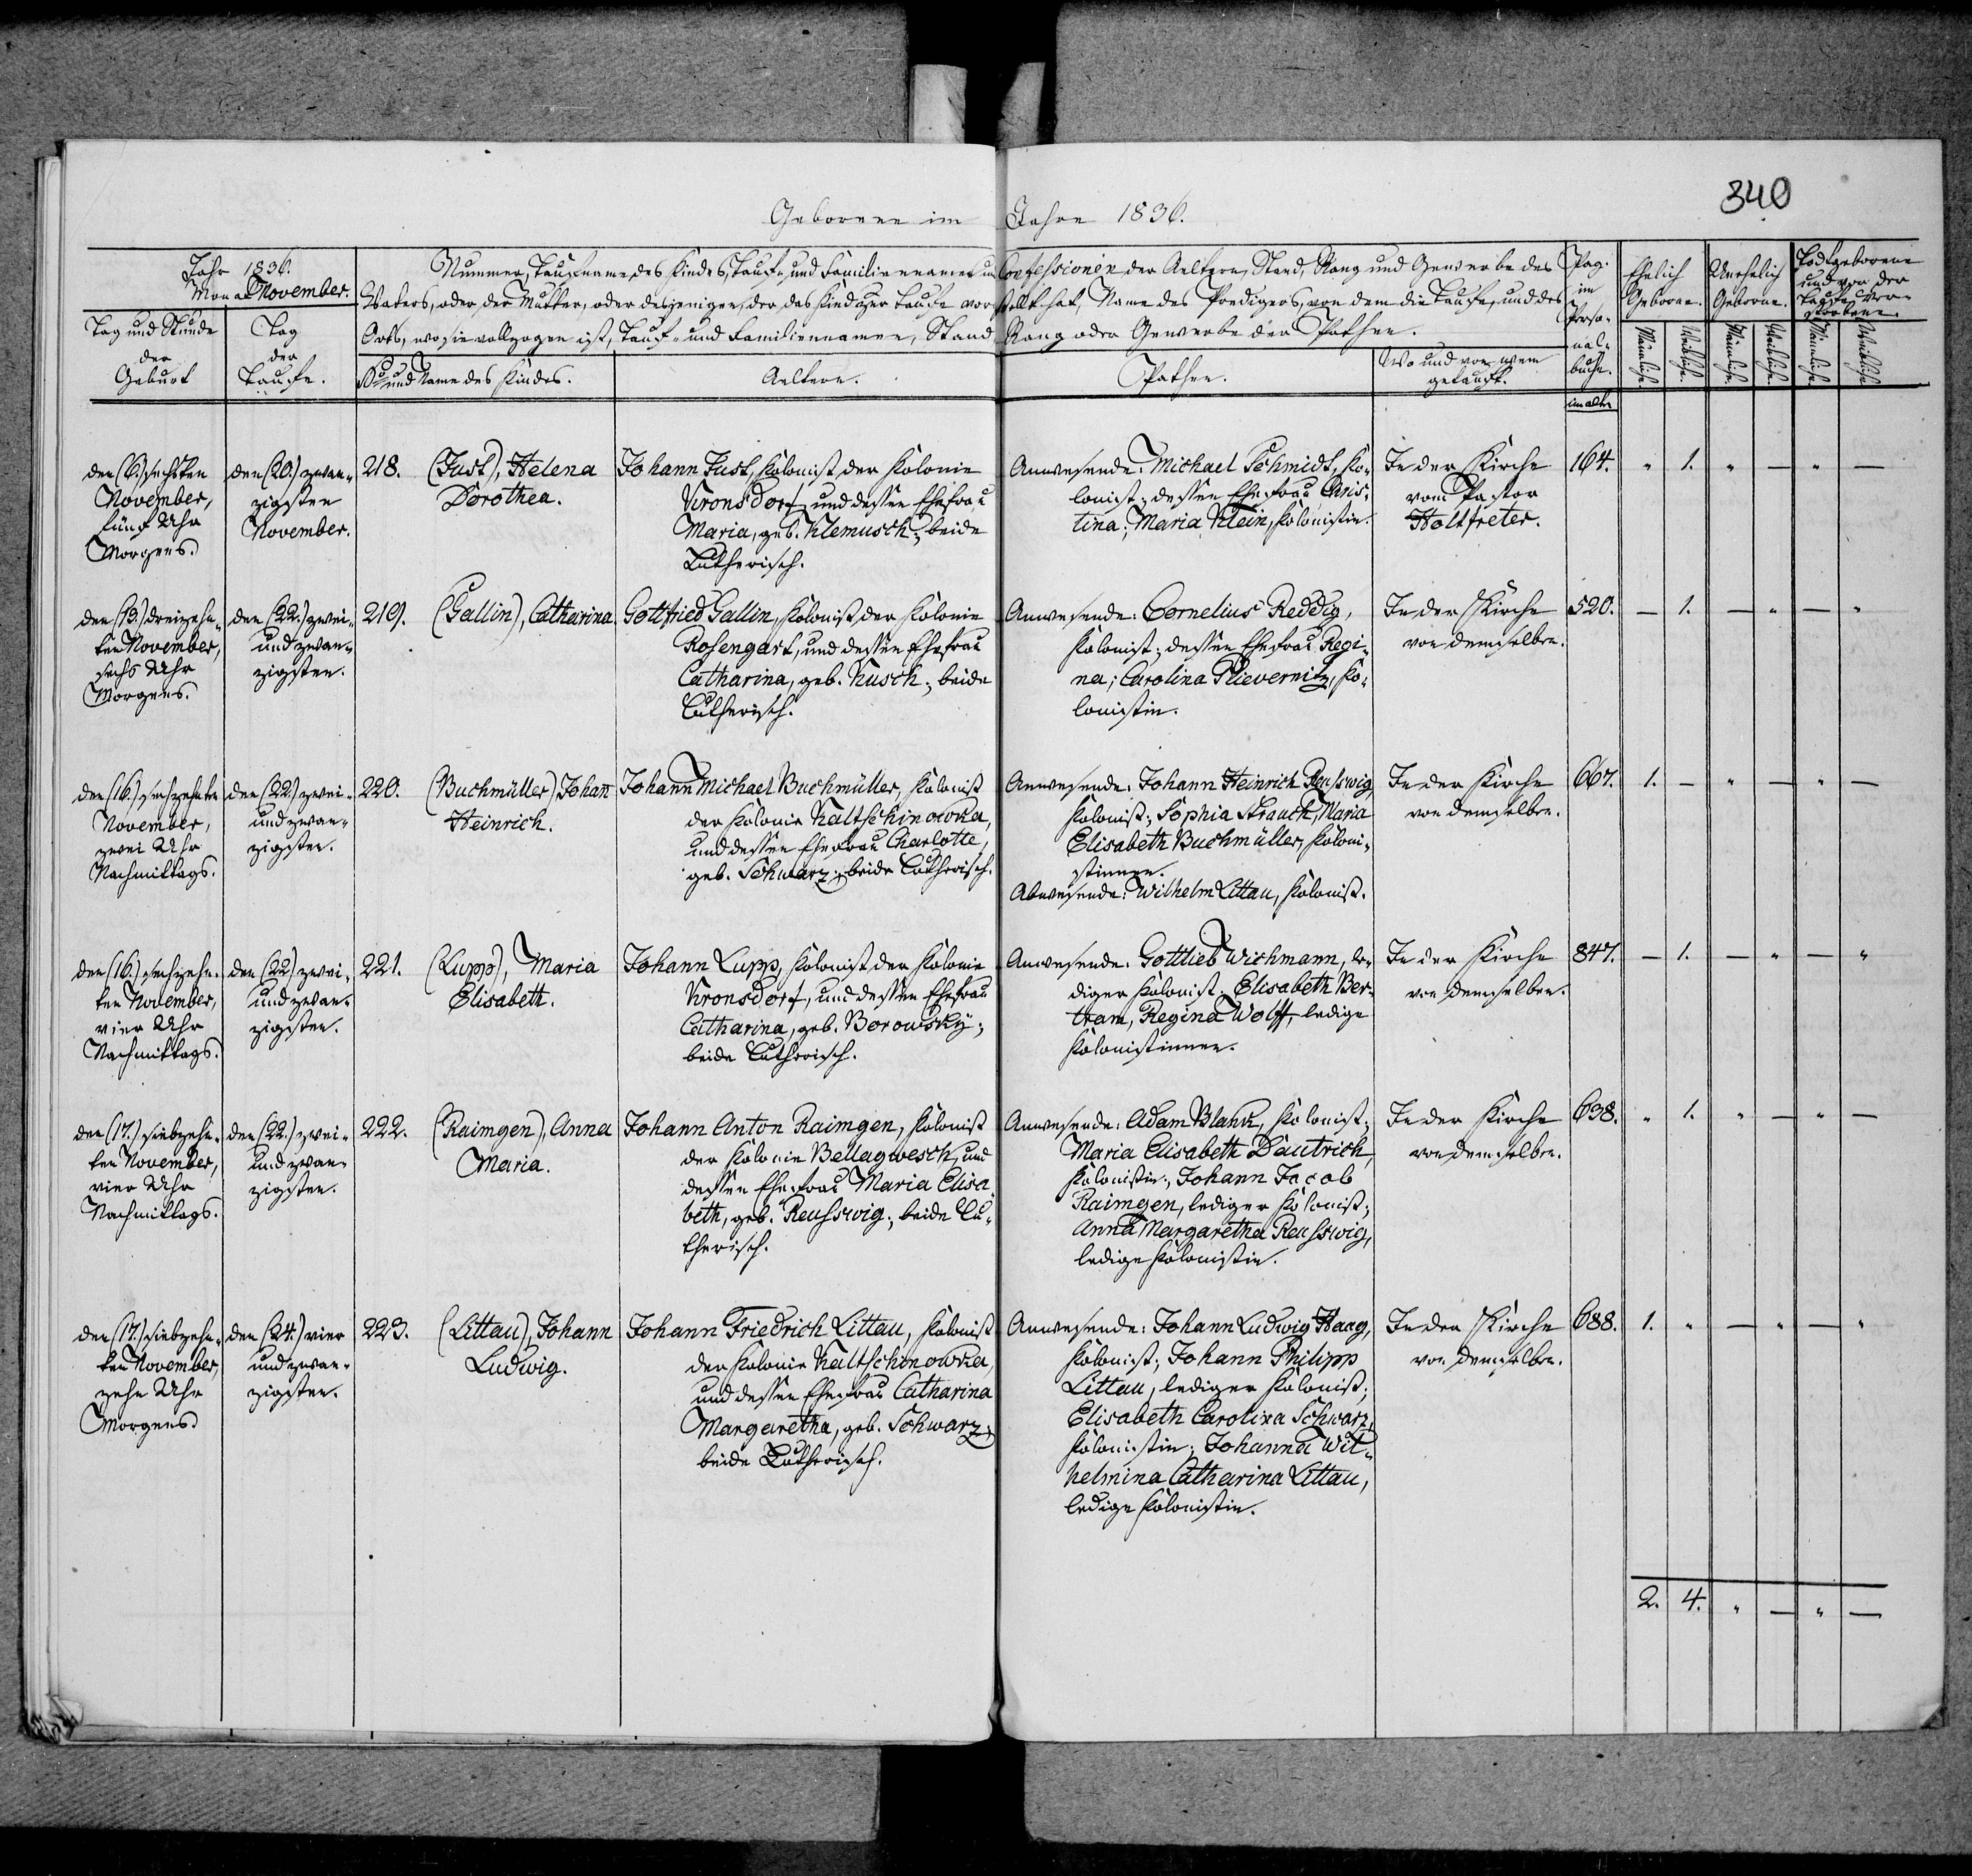 340
Geborene im Jahre 1836.
Jahr 1836.
Monat November.
Nummer, Taufname des Kindes, Tauf- und Familiennamen und Confessionen der Aeltern, Stand, Rang und Gewerbe des
Vaters, oder der Mutter, oder desjenigen, der das Kind zur Taufe vorstellt hat, Name des Predigers, von dem die Taufe, und des
Orts, wo sie vollzogen ist, Tauf- und Familiennamen, Stand, Rang oder Gewerbe der Pathen.
Tag und Stunde
der
Geburt
Tag
der
Taufe.
No und Name des Kindes.
Aeltern.
Pathen.
Wo und von wem
getauft.
Pag.
im
Perso-
nal-
buche.
im alten
Ehelich
Geborne.
Unehelich
Geborne.
Todtgeborene
und vor der
Taufe Ver-
storbene.
Männliche.
Weibliche.
Männliche.
Weibliche.
Männliche.
Weibliche.
den (6.) sechsten
November,
fünf Uhr
Morgens.
den (20.) zwan-
zigsten
November.
218. (Just), Helena
Dorothea.
Johann Just, Kolonist der Kolonie
Kronsdorf, und dessen Ehefrau
Maria, geb. Klemusch; beide
Lutherisch.
Anwesende: Michael Schmidt, Ko-
lonist; dessen Ehefrau Chris-
tina; Maria Klein, Kolonistin.
In der Kirche
vom Pastor
Holtfreter.
164. " 1. " — " —
den (13.) dreizehn-
ten November,
sechs Uhr
Morgens.
den (22.) zwei-
undzwan-
zigsten.
219. (Gallin), Catharina
Gottfried Gallin, Kolonist der Kolonie
Rosengart, und dessen Ehefrau
Catharina, geb. Kusch; beide
Lutherisch.
Anwesende: Cornelius Reddig,
Kolonist; dessen Ehefrau Regi-
na; Carolina Plievernitz, Ko-
lonistin.
In der Kirche
von demselben.
520. — 1. — " — "
den (16.) sechzehnten
November,
zwei Uhr
Nachmittags.
den (22.) zwei-
undzwan-
zigsten.
220. (Buchmüller) Johan̄
Heinrich.
Johann Michael Buchmüller, Kolonist
der Kolonie Kaltschinowka,
und dessen Ehefrau Charlotte,
geb. Schwarz; beide Lutherisch.
Anwesende: Johann Heinrich Reusswig,
Kolonist; Sophia Strauch, Maria
Elisabeth Buchmüller, Koloni-
stinnen.
Abwesende: Wilhelm Littau, Kolonist.
In der Kirche
von demselben.
667. 1. — " — " —
den (16.) sechzehn-
ten November,
vier Uhr
Nachmittags.
den (22) zwei-
undzwan-
zigsten.
221. (Lupp), Maria
Elisabeth.
Johann Lupp, Kolonist der Kolonie
Kronsdorf, und dessen Ehefrau
Catharina, geb. Borowsky;
beide Lutherisch.
Anwesende: Gottlieb Wichmann, le-
diger Kolonist; Elisabeth Ber-
tram, Regina Wolff, ledige
Kolonistinnen.
In der Kirche
von demselben.
847. — 1. — " — "
den (17.) siebzehn-
ten November,
vier Uhr
Nachmittags.
den (22.) zwei-
undzwan-
zigsten.
222. (Raimgen), Anna
Maria.
Johann Anton Raimgen, Kolonist
der Kolonie Bellagwesch, und
dessen Ehefrau Maria Elisa-
beth, geb. Reusswig; beide Lu-
therisch.
Anwesende: Adam Blahk, Kolonist;
Maria Elisabeth Dautrich,
Kolonistin; Johann Jacob
Raimgen, lediger Kolonist;
Anna Margaretha Reusswig,
ledige Kolonistin.
In der Kirche
von demselben.
638. " 1. " — " —
den (17.) siebzehn-
ten November,
zehn Uhr
Morgens
den (24.) vier
undzwan-
zigsten.
223. (Littau), Johann
Ludwig.
Johann Friedrich Littau, Kolonist
der Kolonie Kaltschinowka,
und dessen Ehefrau Catharina
Margaretha, geb. Schwarz;
beide Lutherisch.
Anwesende: Johann Ludwig Haag,
Kolonist; Johann Philipp
Littau, lediger Kolonist;
Elisabeth Carolina Schwarz,
Kolonistin; Johanna Wil-
helmina Catharina Littau,
ledige Kolonistin.
In der Kirche
von demselben.
688. 1. " — " — "
2. 4. " — " —